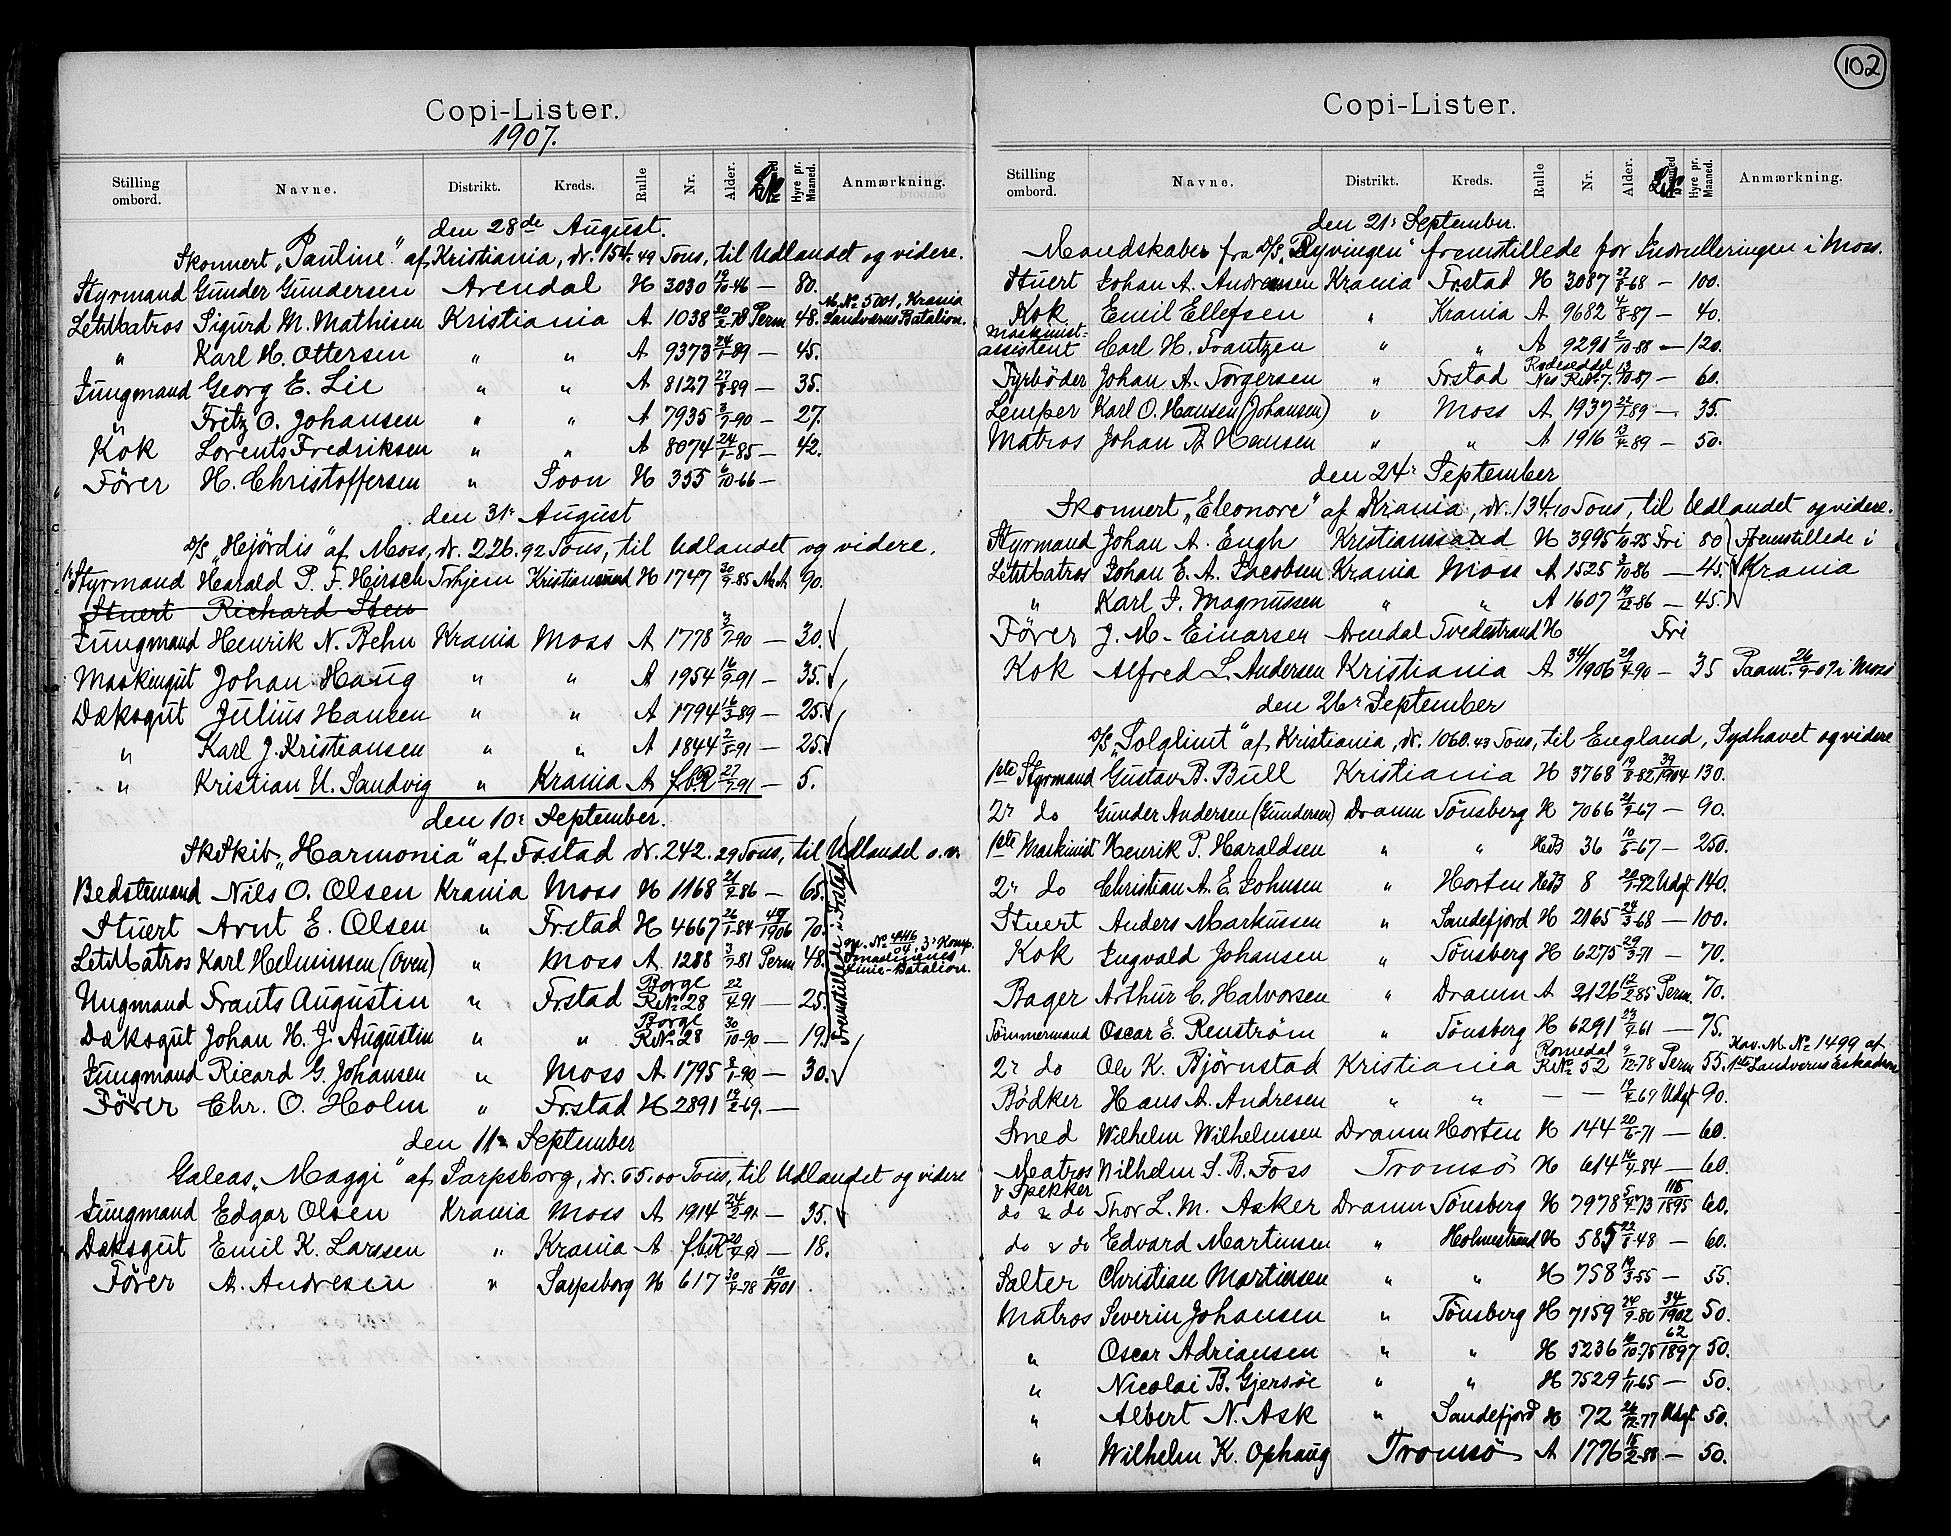 102
Copi-Lister.
1907.
Stilling ombord. Navne. Distrikt. Kreds. Rulle Nr. Alder. Hyre pr. Maaned. Anmærkning.
den 28de August.
Skonnert „Pauline" af Kristiania, dr. 154.49 Tons, til Udlandet og videre.
Styrmand Gunder Gundersen Arendal H 3030 19/10-46 — 80.
LetMatros Sigurd M. Mathisen Kristiania A 1038 20/2-78 Perm 48. M. No 5001, Krania Landverns Batalion.
" Karl H. Ottersen " " A 9373 24/1-89 — 45.
Jungmand Georg E. Lie " " A 8127 27/8-89 — 35.
" Fritz O. Johansen " " A 7935 3/9-90 — 27.
Kok Lorents Fredriksen " " A 8074 24/1-85 — 42.
Fører H. Christoffersen " Soon H 355 6/10-66 —
den 31. August
D/S „Hjördis" af Moss, dr. 226.92 Tons, til Udlandet og videre.
1. Styrmand Harald P. F. Hirsch Trhjem Kristiansund H 1747 30/9-85 90.
Stuert Richard Sten
Jungmand Henrik N. Behn Krania Moss A 1778 3/7-90 — 30.
Maskingut Johan Haug " " A 1954 16/9-91 — 35.
Dæksgut Julius Hansen " " A 1794 16/3-89 — 25.
" Karl J. Kristiansen " " A 1844 2/5-91 — 25.
" Kristian U. Sandvig " Krania A fbR 27/7-91 — 5.
den 10. September.
SkSkib „Harmonia" af Frstad dr. 242.29 Tons, til Udlandet o.v.
Bedstemand Nils O. Olsen Krania Moss H 1168 21/9-86 — 65.
Stuert Arnt E. Olsen " Frstad H 4667 26/1-84 49/1906 70.
LetMatros Karl Helmersen (Oven) " Moss A. 1288 3/7-81 Perm 48. No 4416/04, 3. Komp. Smaalenenes Linie-Batalion.
Ungmand Frants Augustin " Frstad Borge R.No 28 22/4-91 — 25.
Dæksgut Johan H. J. Augustin " " Borge R.No 28 30/10-90 — 19.
Fremstillede i Frstad
Jungmand Ricard G. Johansen " Moss A 1795 8/1-90 — 30.
Fører Chr. O. Holm " Frstad H 2891 19/2-69. —
den 11. September
Galeas „Maggi" af Sarpsborg, dr. 65.00 Tons, til Udlandet og videre
Jungmand Edgar Olsen Krania Moss A 1914 24/2-91 — 35.
Dæksgut Emil K. Larssen " Krania A fbR 20/7-91 — 18.
Fører A. Andresen " Sarpsborg H 617 30/7-78 10/1901.
Copi-Lister.
Stilling ombord. Navne. Distrikt. Kreds. Rulle Nr. Alder. Hyre pr. Maaned. Anmærkning.
den 21. September.
Mandskaber fra D/S „Ryvingen" fremstillede for Indrulleringen i Moss.
Stuert Johan A. Andresen Krania Frstad H 3087 27/8-68 — 100.
Kok Emil Ellefsen " Krania A 9682 4/8-87 — 40.
Maskinist-assistent Carl H. Frantzen " " A 9291 2/10-88 — 120.
Fyrbøder Johan A. Torgersen " Frstad Rodeseddel R.No 7. 13/10-87 — 60.
Lemper Karl O. Hansen (Johansen) " Moss A 1937 22/7-89 — 35.
Matros Johan B. Hansen " " A 1916 13/4-89 — 50.
den 24. September
Skonnert „Eleonore" af Krania, dr. 134.10 Tons, til Udlandet og videre.
Styrmand Johan A. Engh Kristiansand H 3995 1/10-75 Fri 80 Fremstillede i
LetMatros Johan E. A. Jacobsen Krania Moss A 1525 3/10-86 — 45. Krania
" Karl J. Magnussen " " A 1607 19/12-86 — 45.
Fører J. M. Einarsen Arendal Tvedestrand H Fri
Kok Alfred L. Andersen Kristiania A 34/1906 29/4-90 — 35 Paam. 26/9-07 i Moss
den 26. September
D/S „Solglimt" af Kristiania, dr. 1060.43 Tons, til England, Sydhavet og videre
1ste Styrmand Gustav B. Bull Kristiania H 3768 19/8-82 39/1904 130.
2. do Gunder Andersen (Gundersen) Dramn Tönsberg H 7066 21/9-67 — 90.
1ste Maskinist Henrik P. Haraldsen " " HdB 36 10/5-67 — 250.
2. do Christian A. E. Johnsen " Horten HdB 8 20/1-82 Udgt. 140.
Stuert Anders Markussen " Sandefjord H 2165 24/3-68 — 100.
Kok Ingvald Johansen " Tönsberg H 6275 29/3-71 — 70.
Bager Arthur C. Halvorsen " Dramn A 2126 12/2-85 Perm. 70.
Tömmermand Oscar E. Renström " Tönsberg H 6291 23/9-61 — 75.
2. do Ole K. Bjørnstad Kristiania Romedal R.No 52 9/12-78 Perm 55. Kav. M. No 1499 af 1ste Landverns Eskadron
Bödker Hans A. Andresen " " — — 19/4-69 Udgt 90.
Smed Wilhelm Wilhelmsen Dramn Horten H 144 20/6-71 — 60.
Matros Wilhelm S. B. Foss Tromsö H 614 16/4-84 — 60.
& Spekker
do & do Thor L. M. Asker Dramn Tönsberg H 7978 5/9-73 115/1895 60.
do & do Edvard Martinsen " Holmestrand H 585 22/8-48 — 60.
Salter Christian Martinsen " " H 758 19/3-55 — 55.
Matros Severin Johansen " Tönsberg H 7159 24/9-80 34/1902 50.
" Oscar Adriansen " " H 5236 10/10-75 62/1897 50.
" Nicolai B. Gjersöe " " H 7529 1/11-65 — 50.
" Albert N. Ask " Sandefjord H 72 26/12-77 Udgt 50.
" Wilhelm K. Ophaug Tromsö A 1776 15/2-88 — 50.